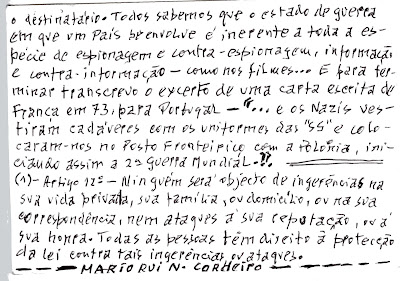 o destinatário. Todos sabemos que o estado de guerra
em que um País se envolve é inerente a toda a es-
pécie de espionagem e contra-espionagem, informação
e contra-informação - como nos filmes... E para ter-
minar transcrevo o excerto de uma carta escrita de
França em 73, para Portugal - "... e os Nazis ves-
tiram cadáveres com os uniformes das "SS" e colo-
caram-nos no Posto Fronteiriço com a Polónia, ini-
ciando assim a 2ª Guerra Mundial..."
(1) - Artigo 12º - Ninguém será objecto de ingerências na
sua vida privada, sua família, ou domicílio, ou na sua
correspondência, nem ataques à sua reputação, ou à
sua honra. Todas as pessoas têm direito à protecção
da lei contra tais ingerências ou ataques.
MARIO RUI N. CORDEIRO